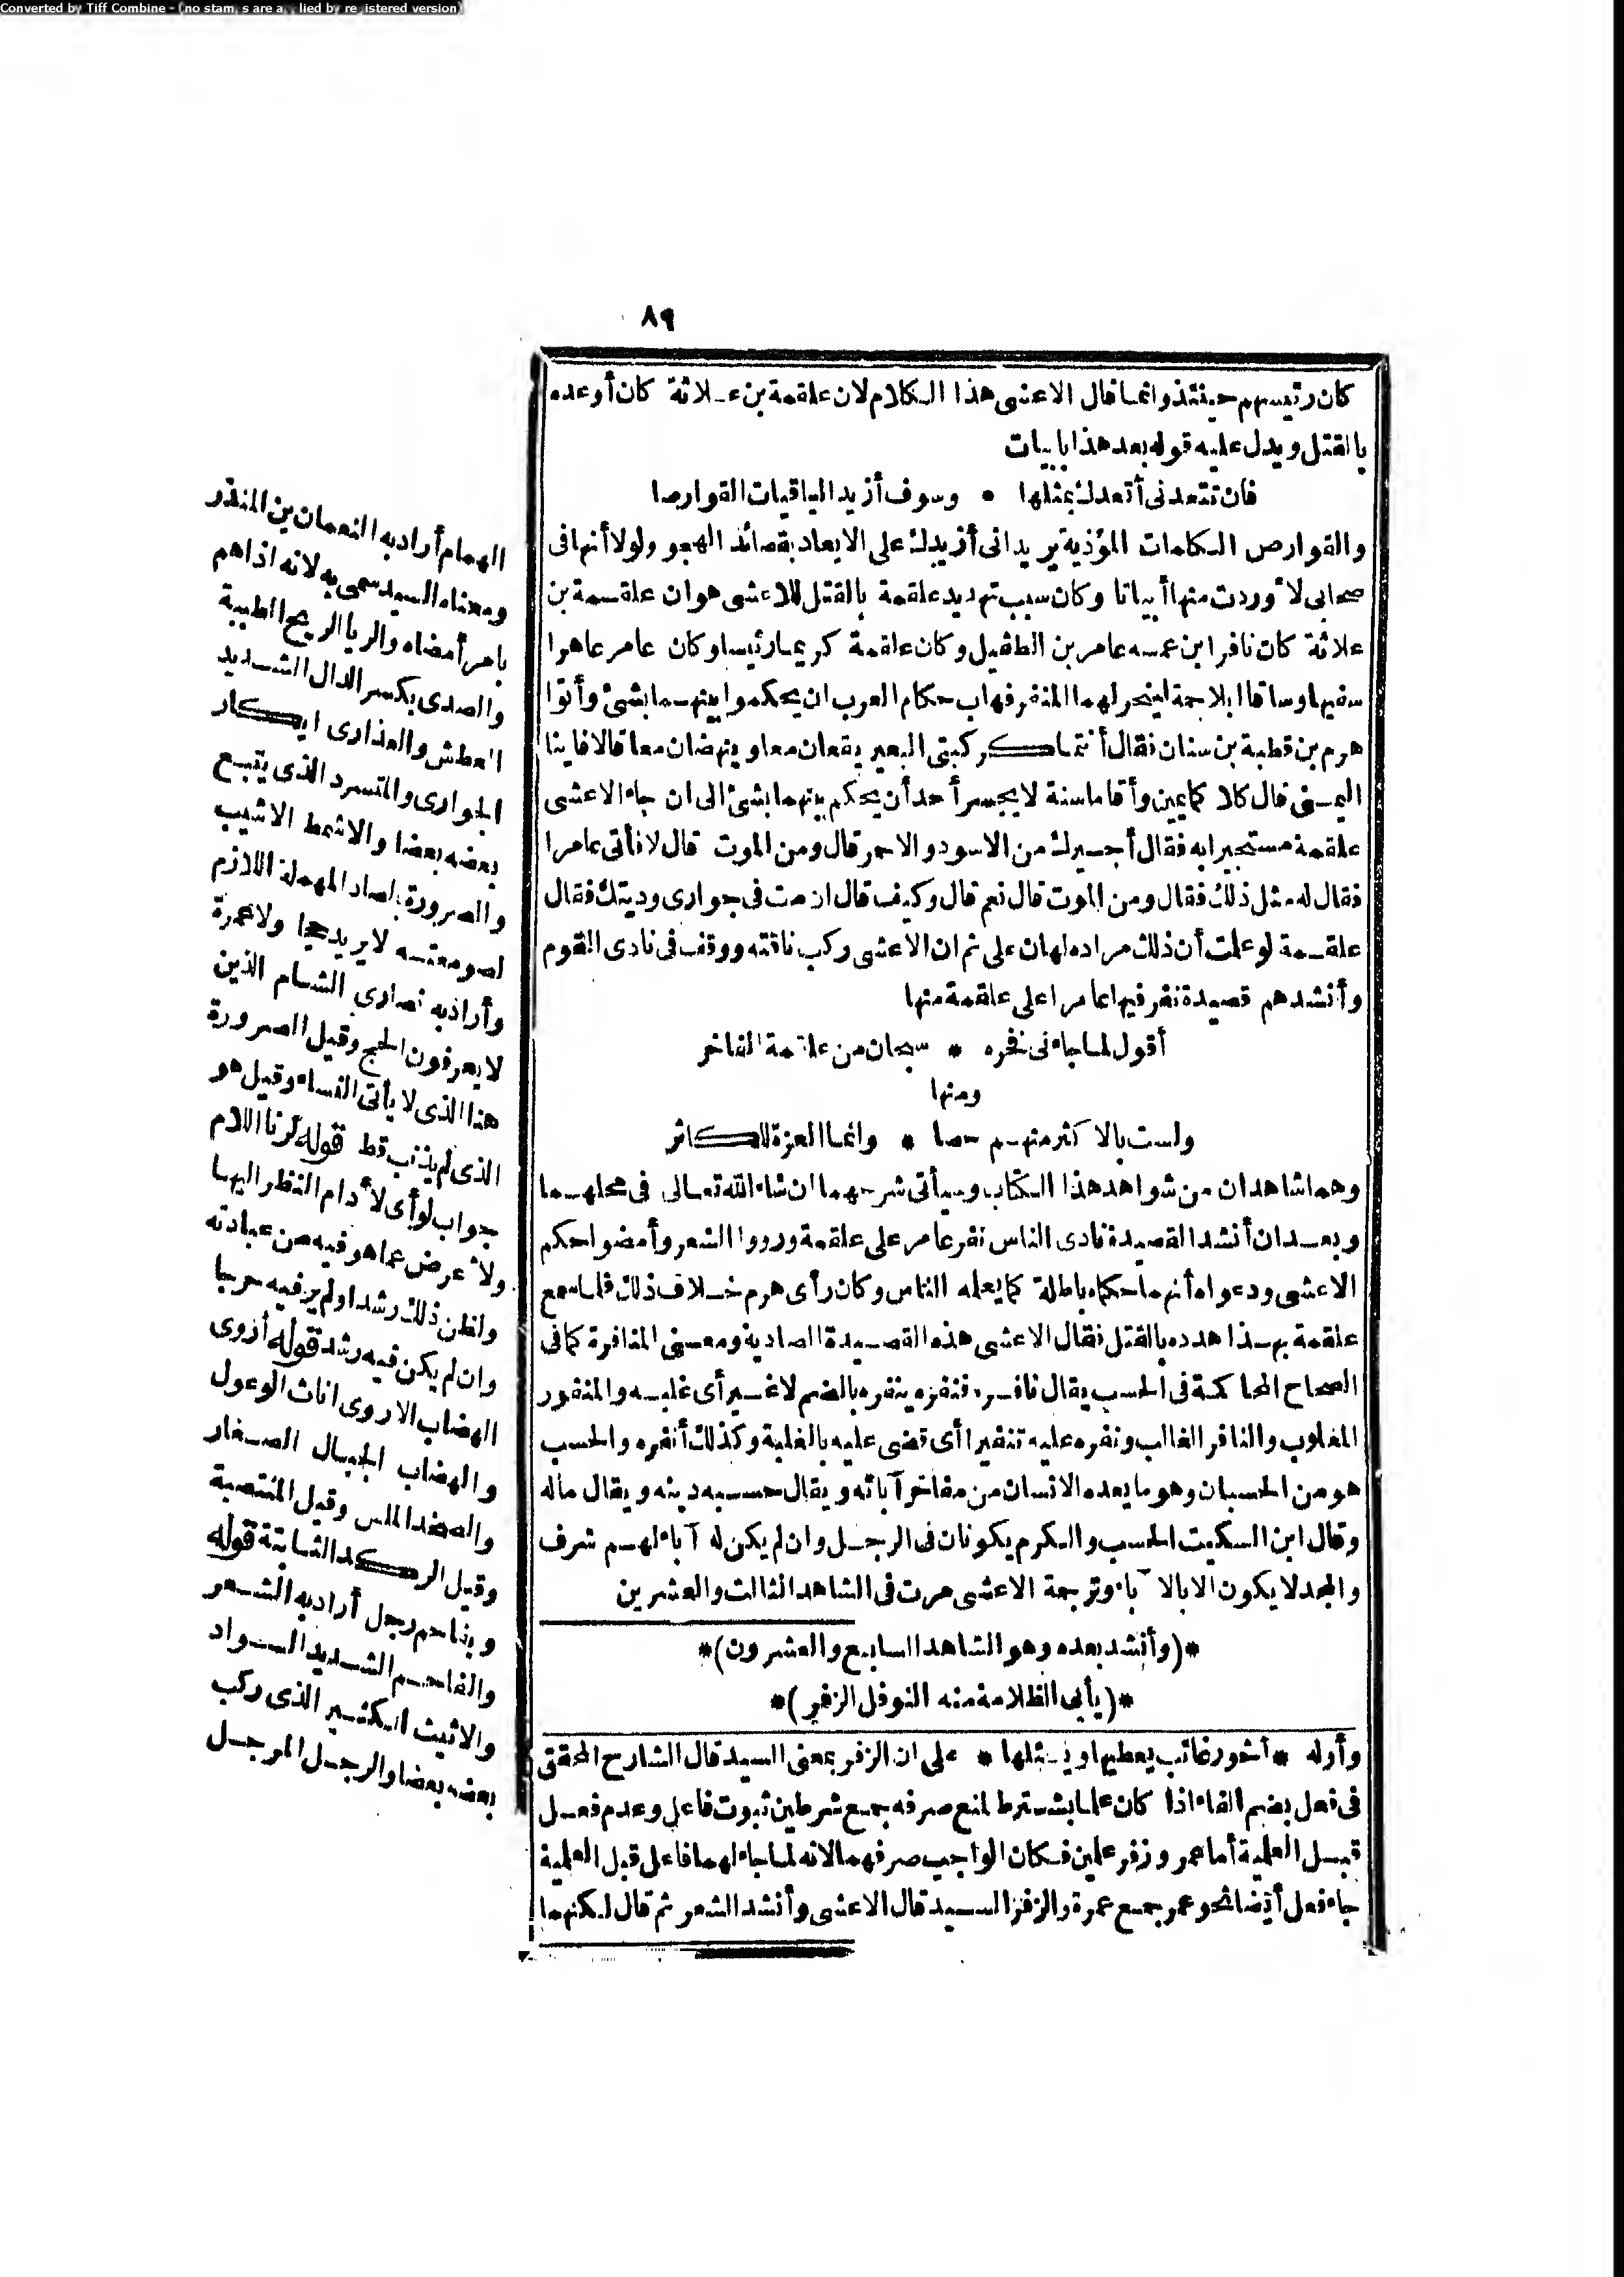 Converted by Tiff Combine - (no stamps are applied by registered version)
٨٩
كان رئيسهم حينئذ وانما قال الاعشى هذا الكلام لان علقمة بن علاثة كان أوعده
بالقتل ويدل عليه قوله بعد هذا بابيات
فان تتعدنى أتعدك بمثلها * وسوف أزيد الباقيات القوارصا
والقوارص الكلمات المؤذية يريد انى أزيدك على الايعاد بقصائد الهجو ولولا أنها فى
صحابى لأوردت منها أبياتا وكان سبب تهديد علقمة بالقتل للاعشى هو ان علقمة بن
علاثة كان نافر ابن عمه عامر بن الطفيل وكان علقمة كريما رئيسا وكان عامر عاهرا
سفيها وساقا ابلا جمة لينحر لهما المنفر فهاب حكام العرب ان يحكموا بينهما بشئ وأتوا
هرم بن قطبة بن سنان فقال أنتما كركبتى البعير يقعان معا وينهضان معا قالا فاينا
اليمنى قال كلا كما يمين وأقاما سنة لا يجسر أحد أن يحكم بينهما بشئ الى ان جاء الاعشى
علقمة مستجيرا به فقال أجيرك من الاسود والاحمر قال ومن الموت قال لا فأتى عامرا
فقال له مثل ذلك فقال ومن الموت قال نعم قال وكيف قال ان مت فى جوارى وديتك فقال
علقمة لو علمت أن ذلك مراده لهان على ثم ان الاعشى ركب ناقته ووقف فى نادى القوم
وأنشدهم قصيدة نفر فيها عامرا على علقمة منها
أقول لما جاءنى فخره * سبحان من علقمة الفاخر
ومنها
ولست بالاكثر منهم حصا * وانما العزة للكاثر
وهما شاهدان من شواهد هذا الكتاب وسيأتى شرحهما ان شاء الله تعالى فى محلهما
وبعد ان أنشد القصيدة نادى الناس نفر عامر على علقمة ورووا الشعر وأمضوا حكم
الاعشى ودعواه أنهما حكماه باطلة كما يعلمه الناس وكان رأى هرم خلاف ذلك فلما سمع
علقمة بهذا هدده بالقتل فقال الاعشى هذه القصيدة الصادية ومعنى المنافرة كما فى
الصحاح المحاكمة فى الحسب يقال نافره فنفره ينفره بالضم لا غير أى غلبه والمنفور
المغلوب والنافر الغالب ونفره عليه تنفيرا أى قضى عليه بالغلبة وكذلك أنفره والحسب
هو من الحسبان وهو ما يعده الانسان من مفاخر آبائه ويقال حسبه دينه ويقال ماله
وقال ابن السكيت الحسب والكرم يكونان فى الرجل وان لم يكن له آباء لهم شرف
والمجد لا يكون الا بالآباء وترجمة الاعشى مرت فى الشاهد الثالث والعشرين
*(وأنشد بعده وهو الشاهد السابع والعشرون)*
*(يأبى الظلامة منه النوفل الزفر)*
وأوله * أخو رغائب يعطيها ويسئلها * على ان الزفر بمعنى السيد قال الشارح المحقق
فى فعل بضم الفاء اذا كان علما يشترط لمنع صرفه جمع شرطين ثبوت فاعل وعدم فعل
قبل العلمية أما عمر وزفر علمين فكان الواجب صرفهما لانه لما جاء لهما فاعل قبل العلمية
جاء فعل أيضا نحو عمر جمع عمرة والزفر السيد قال الاعشى وأنشد الشعر ثم قال لكنهما
الهمام أراد به النعمان بن المنذر
ومعناه السيد سمى به لانه اذا هم
بامر أمضاه والريا الريح الطيبة
والصدى بكسر الدال الشديد
العطش والعذارى ابكار
الجوارى والمتسرد الذى يتبع
بعضه بعضا والاشمط الاشيب
والصرورة بالصاد المهملة اللازم
لصومعته لا يريد حجا ولا عمرة
وأراد به نصارى الشام الذين
لا يعرفون الحج وقيل الصرورة
هنا الذى لا يأتى النساء وقيل هو
الذى لم يذنب قط قوله لرنا اللام
جواب لو أى لأدام النظر اليها
ولأعرض عما هو فيه من عبادته
ولظن ذلك رشدا ولم ير فيه حرجا
وان لم يكن فيه رشد قوله أروى
الهضاب الاروى اناث الوعول
والهضاب الجبال الصغار
والصخد الملس وقيل المنتصبة
وقيل الركد الثابتة قوله
وبفاحم رجل أراد به الشعر
والفاحم الشديد السواد
والاثيث الكثير الذى ركب
بعضه بعضا والرجل المرجل